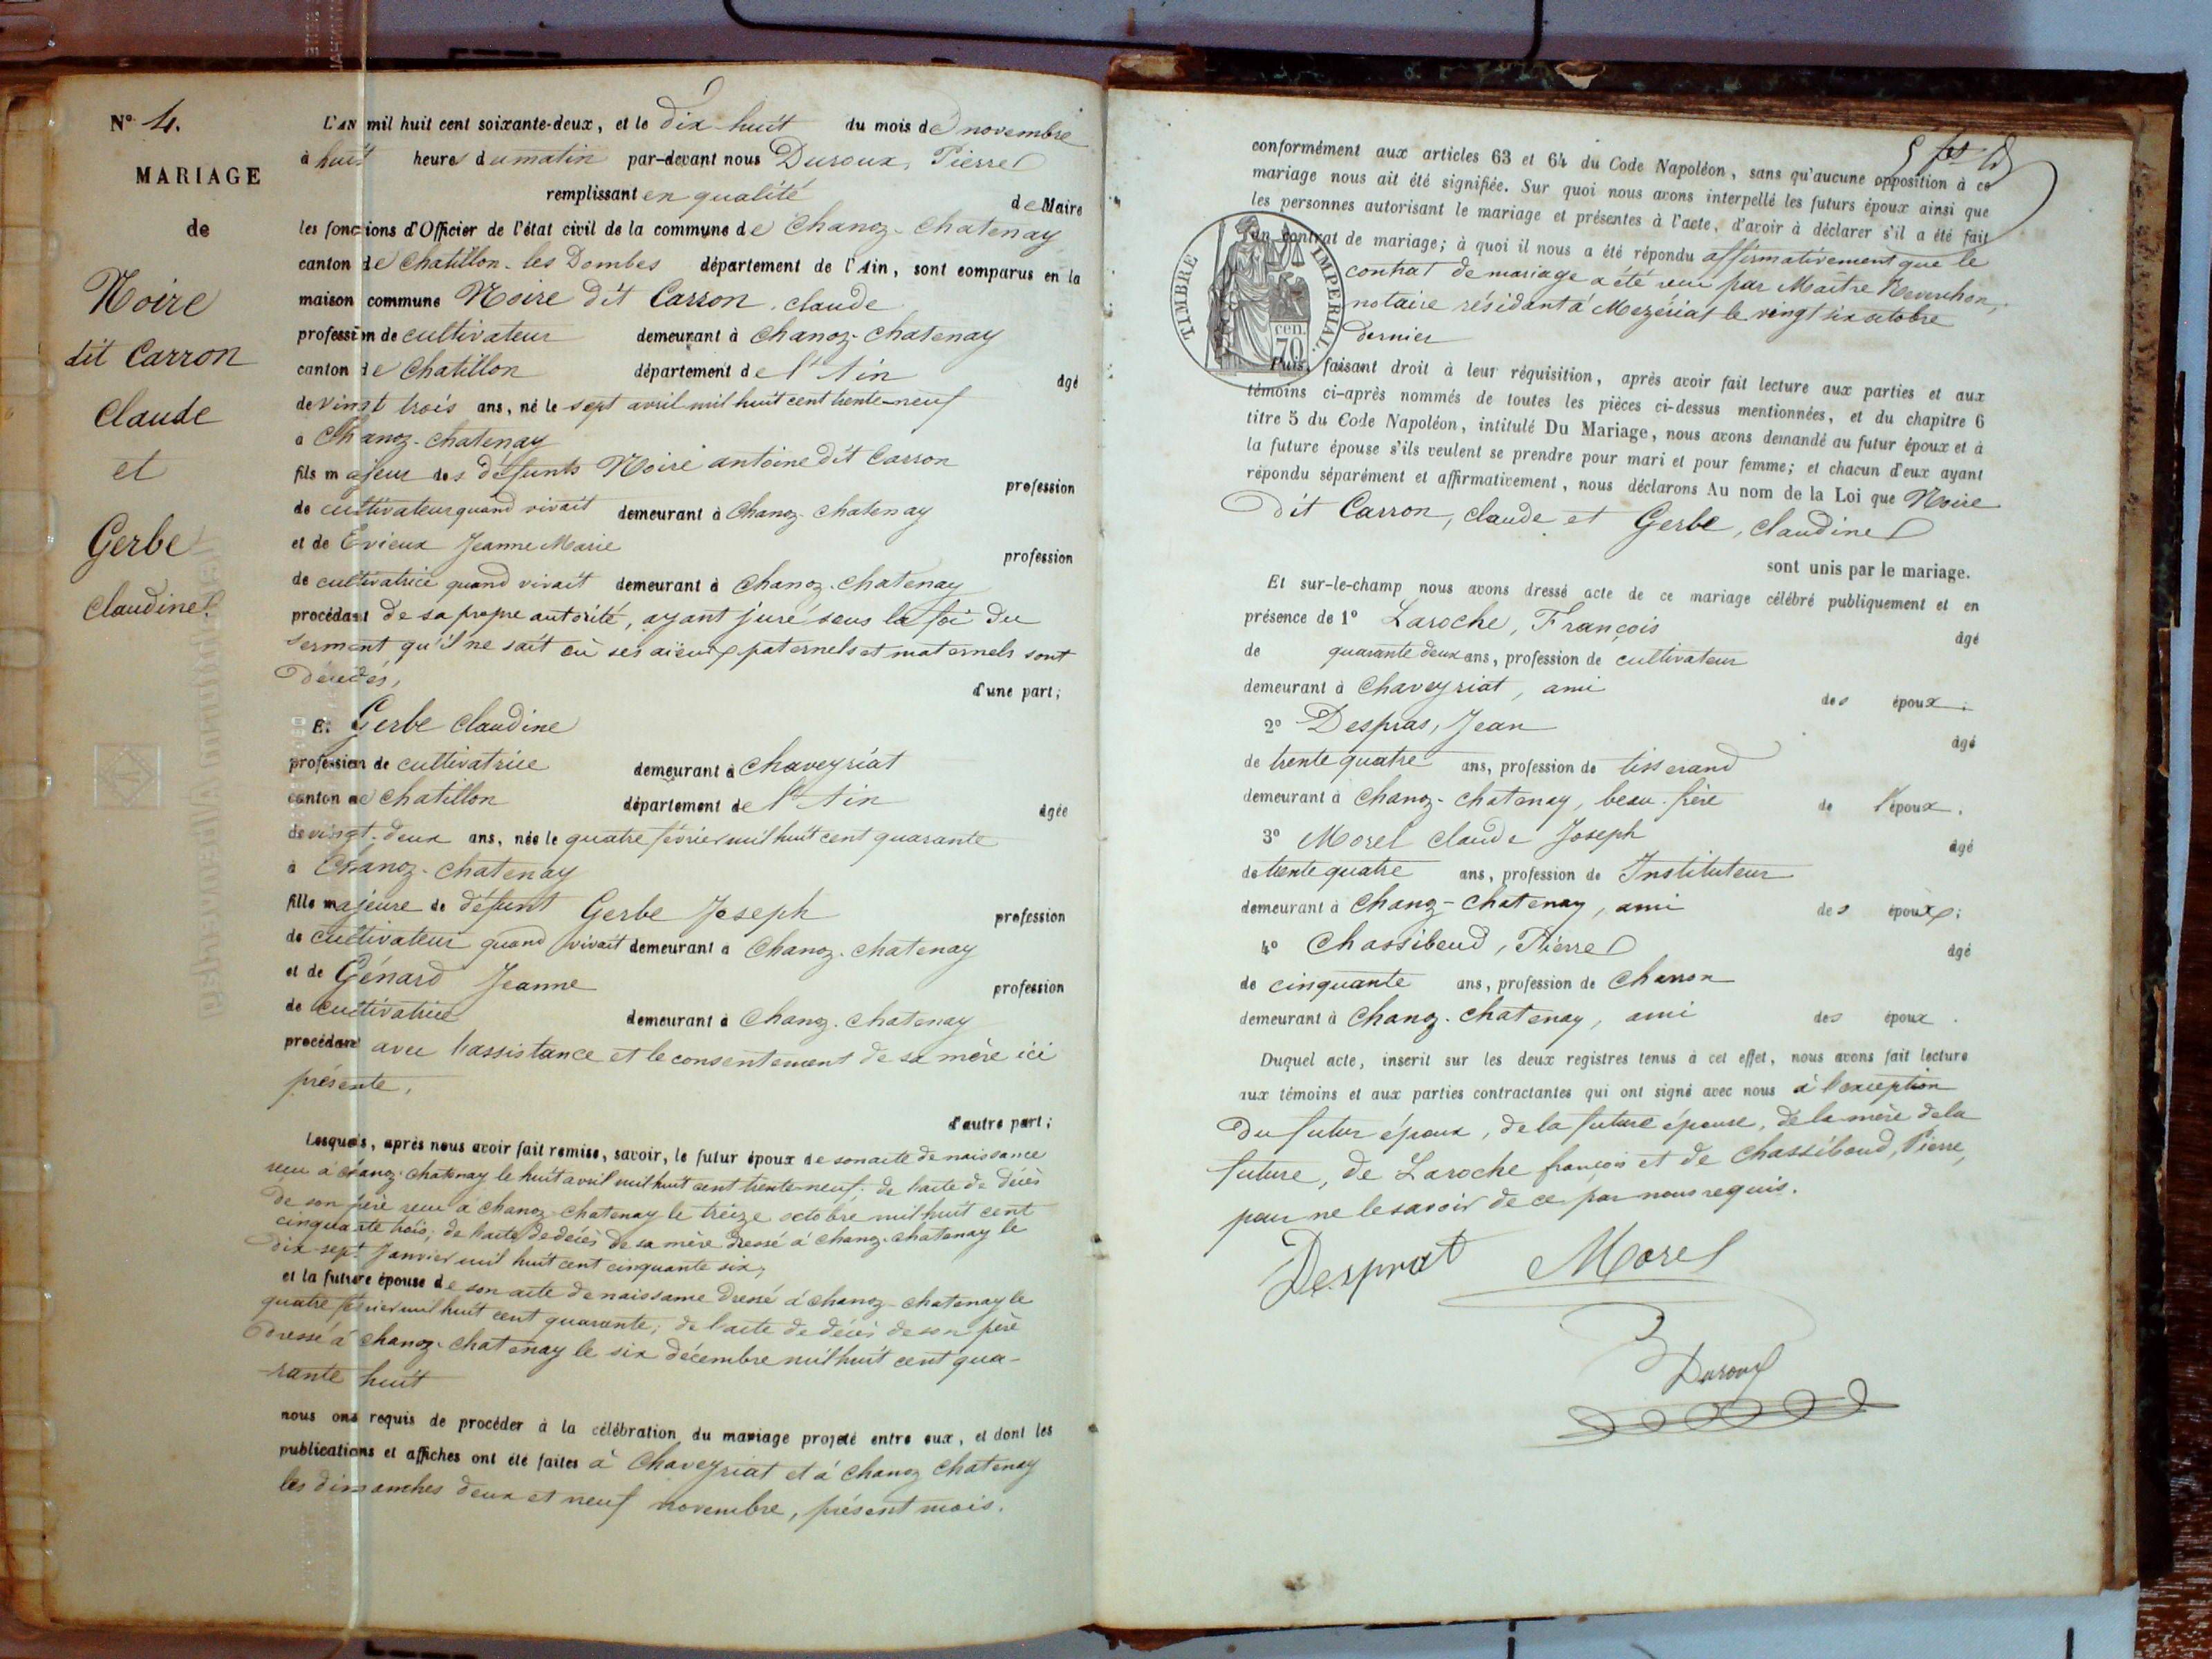 N° 4.
MARIAGE
de
Noire
dit Carron
Claude
et
Gerbe
Claudine
L'AN mil huit cent soixante-deux, et le dix huit du mois de novembre
à huit heures du matin par-devant nous Duroux, Pierre
remplissant en qualité de Maire
les fonctions d'Officier de l'état civil de la commune de Chanoz-Chatenay
canton de Chatillon-les Dombes département de l'Ain, sont comparus en la
maison commune Noire dit Carron, Claude
profession de cultivateur demeurant à Chanoz-Chatenay
canton de Chatillon département de l'Ain âgé
de vingt trois ans, né le sept avril mil huit cent trente-neuf
à Chanoz-Chatenay
fils majeur des défunts Noire antoine dit Carron profession
de cultivateur quand vivait demeurant à Chanoz-Chatenay
et de Evieux Jeanne Marie profession
de cultivatrice quand vivait demeurant à Chanoz-Chatenay
procédant de sa propre autorité, ayant juré sous la foi du
serment qu'il ne sait où ses aïeux paternels et maternels sont
décédés, d'une part;
Et Gerbe Claudine
profession de cultivatrice demeurant à Chaveyriat
canton de Chatillon département de l'Ain âgée
de vingt-deux ans, née le quatre février mil huit cent quarante
à Chanoz-Chatenay
fille majeure de défunt Gerbe Joseph profession
de cultivateur quand vivait demeurant à Chanoz-Chatenay
et de Génard Jeanne profession
de cultivatrice demeurant à Chanoz-Chatenay
procédant avec l'assistance et le consentement de sa mère ici
présente, d'autre part;
Lesquels, après nous avoir fait remise, savoir, le futur époux de son acte de naissance
reçu à Chanoz-Chatenay le huit avril mil huit cent trente-neuf; de l'acte de décès
de son père reçu à Chanoz-Chatenay le treize octobre mil huit cent
cinquante trois; de l'acte de décès de sa mère dressé à Chanoz-Chatenay le
dix-sept Janvier mil huit cent cinquante six,
et la future épouse de son acte de naissance dressé à Chanoz-Chatenay le
quatre février mil huit cent quarante; de l'acte de décès de son père
dressé à Chanoz-Chatenay le six décembre mil huit cent qua-
rante huit
nous ont requis de procéder à la célébration du mariage projeté entre eux, et dont les
publications et affiches ont été faites à Chaveyriat et à Chanoz Chatenay
les dimanches deux et neuf novembre, présent mois.
conformément aux articles 63 et 64 du Code Napoléon, sans qu'aucune opposition à ce
mariage nous ait été signifiée. Sur quoi nous avons interpellé les futurs époux ainsi que
les personnes autorisant le mariage et présentes à l'acte, d'avoir à déclarer s'il a été fait
un contrat de mariage; à quoi il nous a été répondu affirmativement que le
contrat de mariage a été reçu par Maître Reverchon,
notaire résidant à Mezériat le vingt six octobre
dernier
TIMBRE IMPERIAL.
cen.
70
Puis, faisant droit à leur réquisition, après avoir fait lecture aux parties et aux
témoins ci-après nommés de toutes les pièces ci-dessus mentionnées, et du chapitre 6
titre 5 du Code Napoléon, intitulé Du Mariage, nous avons demandé au futur époux et à
la future épouse s'ils veulent se prendre pour mari et pour femme; et chacun d'eux ayant
répondu séparément et affirmativement, nous déclarons Au nom de la Loi que Noire
dit Carron, Claude et Gerbe, Claudine
sont unis par le mariage.
Et sur-le-champ nous avons dressé acte de ce mariage célébré publiquement et en
présence de 1° Laroche, François âgé
de quarante deux ans, profession de cultivateur
demeurant à Chaveyriat, ami des époux;
2° Despras, Jean âgé
de trente quatre ans, profession de tisserand
demeurant à Chanoz-Chatenay, beau-frère de l'époux.
3° Morel Claude Joseph âgé
de trente quatre ans, profession de Instituteur
demeurant à Chanoz-Chatenay, ami des époux;
4° Chassiboud, Pierre âgé
de cinquante ans, profession de Charron
demeurant à Chanoz-Chatenay, ami des époux.
Duquel acte, inscrit sur les deux registres tenus à cet effet, nous avons fait lecture
aux témoins et aux parties contractantes qui ont signé avec nous à l'exception
du futur époux, de la future épouse, de la mère de la
future, de Laroche françois et de Chassiboud, Pierre,
pour ne le savoir de ce par nous requis.
Desprat Morel
Duroux